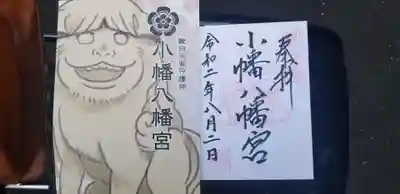 小幡八幡宮
奉拝
小幡八幡宮
令和二年八月二日